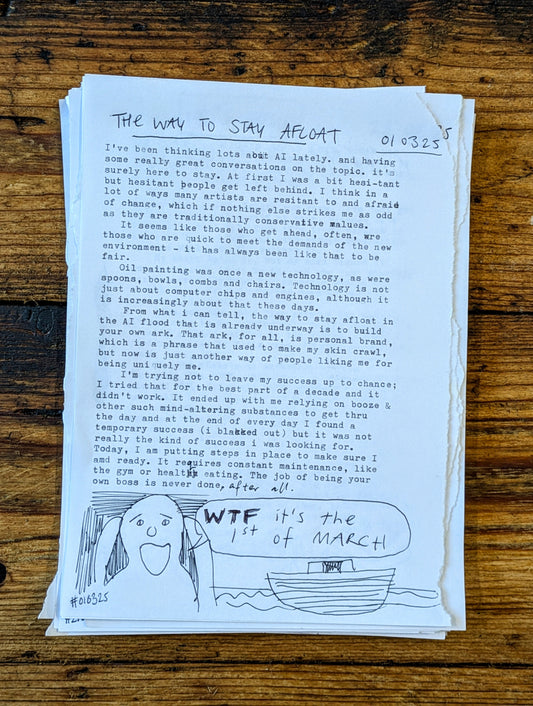 THE WAY TO STAY AFLOAT
010325
I've been thinking lots about AI lately. and having
some really great conversations on the topic. it's
surely here to stay. At first I was a bit hesi-tant
but hesitant people get left behind. I think in a
lot of ways many artists are resitant to and afraid
of change, which if nothing else strikes me as odd
as they are traditionally conservative values.
It seems like those who get ahead, often, are
those who are quick to meet the demands of the new
environment - it has always been like that to be
fair.
Oil painting was once a new technology, as were
spoons, bowls, combs and chairs. Technology is not
just about computer chips and engines, although it
is increasingly about that these days.
From what i can tell, the way to stay afloat in
the AI flood that is already underway is to build
your own ark. That ark, for all, is personal brand,
which is a phrase that used to make my skin crawl,
but now is just another way of people liking me for
being uniquely me.
I'm trying not to leave my success up to chance;
I tried that for the best part of a decade and it
didn't work. It ended up with me relying on booze &
other such mind-altering substances to get thru
the day and at the end of every day I found a
temporary success (i blacked out) but it was not
really the kind of success i was looking for.
Today, I am putting steps in place to make sure I
amd ready. It requires constant maintenance, like
the gym or healthy eating. The job of being your
own boss is never done, after all.
WTF it's the
1st of MARCH
#010325